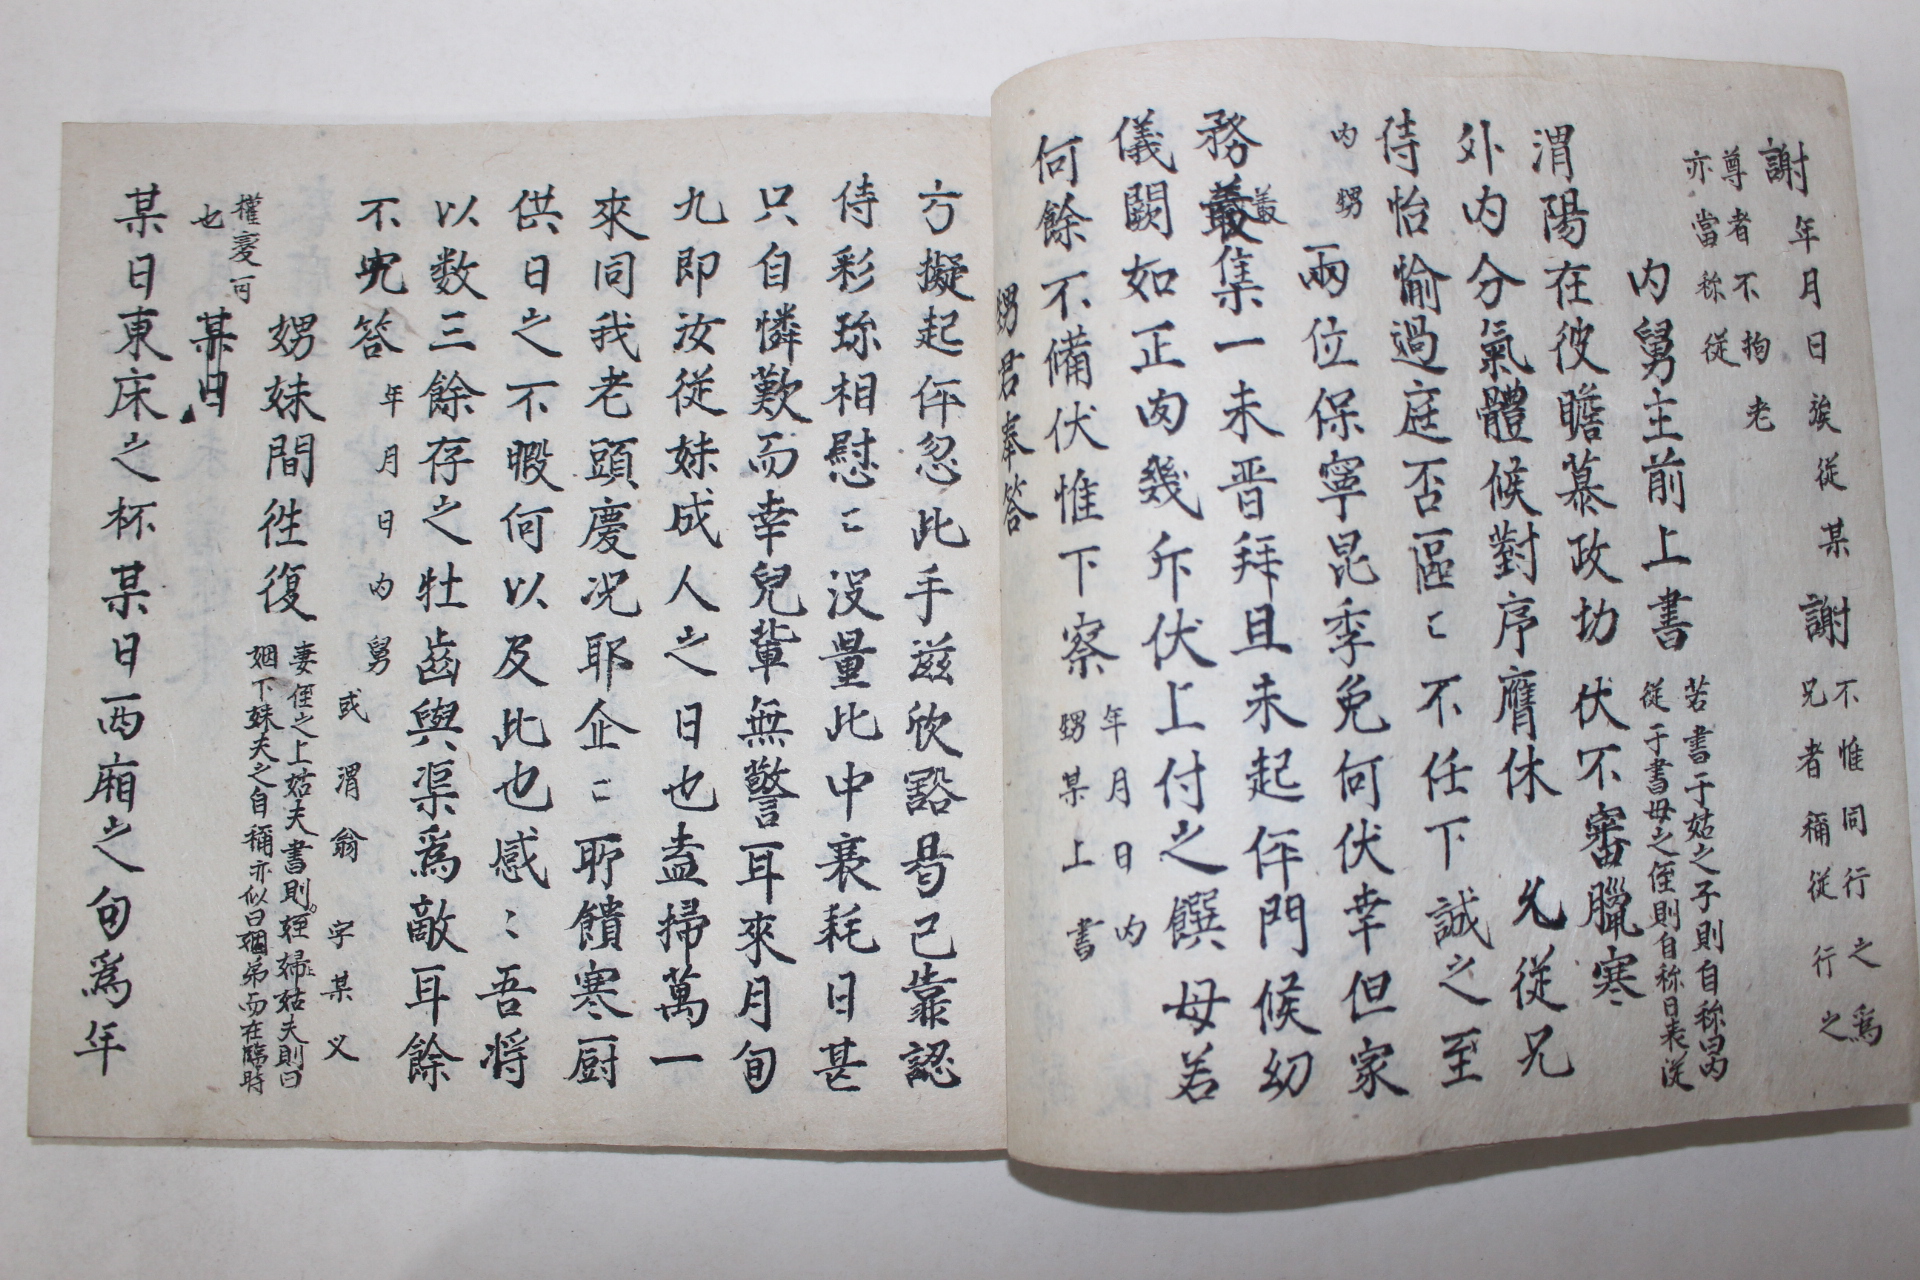 謝 年月日 族從某 謝 不惟同行之爲
兄者稱從行之
尊者不拘老
亦當称從
内舅主前上書 若書于姑之子則自称曰内
從于書母之侄則自称曰表從
渭陽在彼瞻慕政切 伏不審臘寒
外内分氣體候對序膺休 允從兄
侍怡愉過庭否區〻不任下誠之至
内甥 兩位保寧昆季免何伏幸但家
務叢集一未晋拜且未起伻門候幼
叢
儀闕如正肉幾斤伏上付之饌母若
何餘不備伏惟下察 年月日内
甥某上書
甥君奉答
方擬起伻忽此手滋欣豁曷已靠認
侍彩珎相慰〻沒量此中衰耗日甚
只自憐歎而幸兒輩無警耳來月旬
九即汝從妹成人之日也盍掃萬一
來同我老頭慶况耶企〻耶饋寒厨
供日之不暇何以及此也感〻吾将
以数三餘存之牡齒與渠爲敵耳餘
不宄答 年月日内舅 或渭翁 字某乂
娚妹間徃復 妻侄之上姑夫書則侄婦姑夫則曰
姻下妹夫之自稱亦似曰姻弟而在臨時
權變可
也 某日
某日東床之杯某日西廂之甸爲年